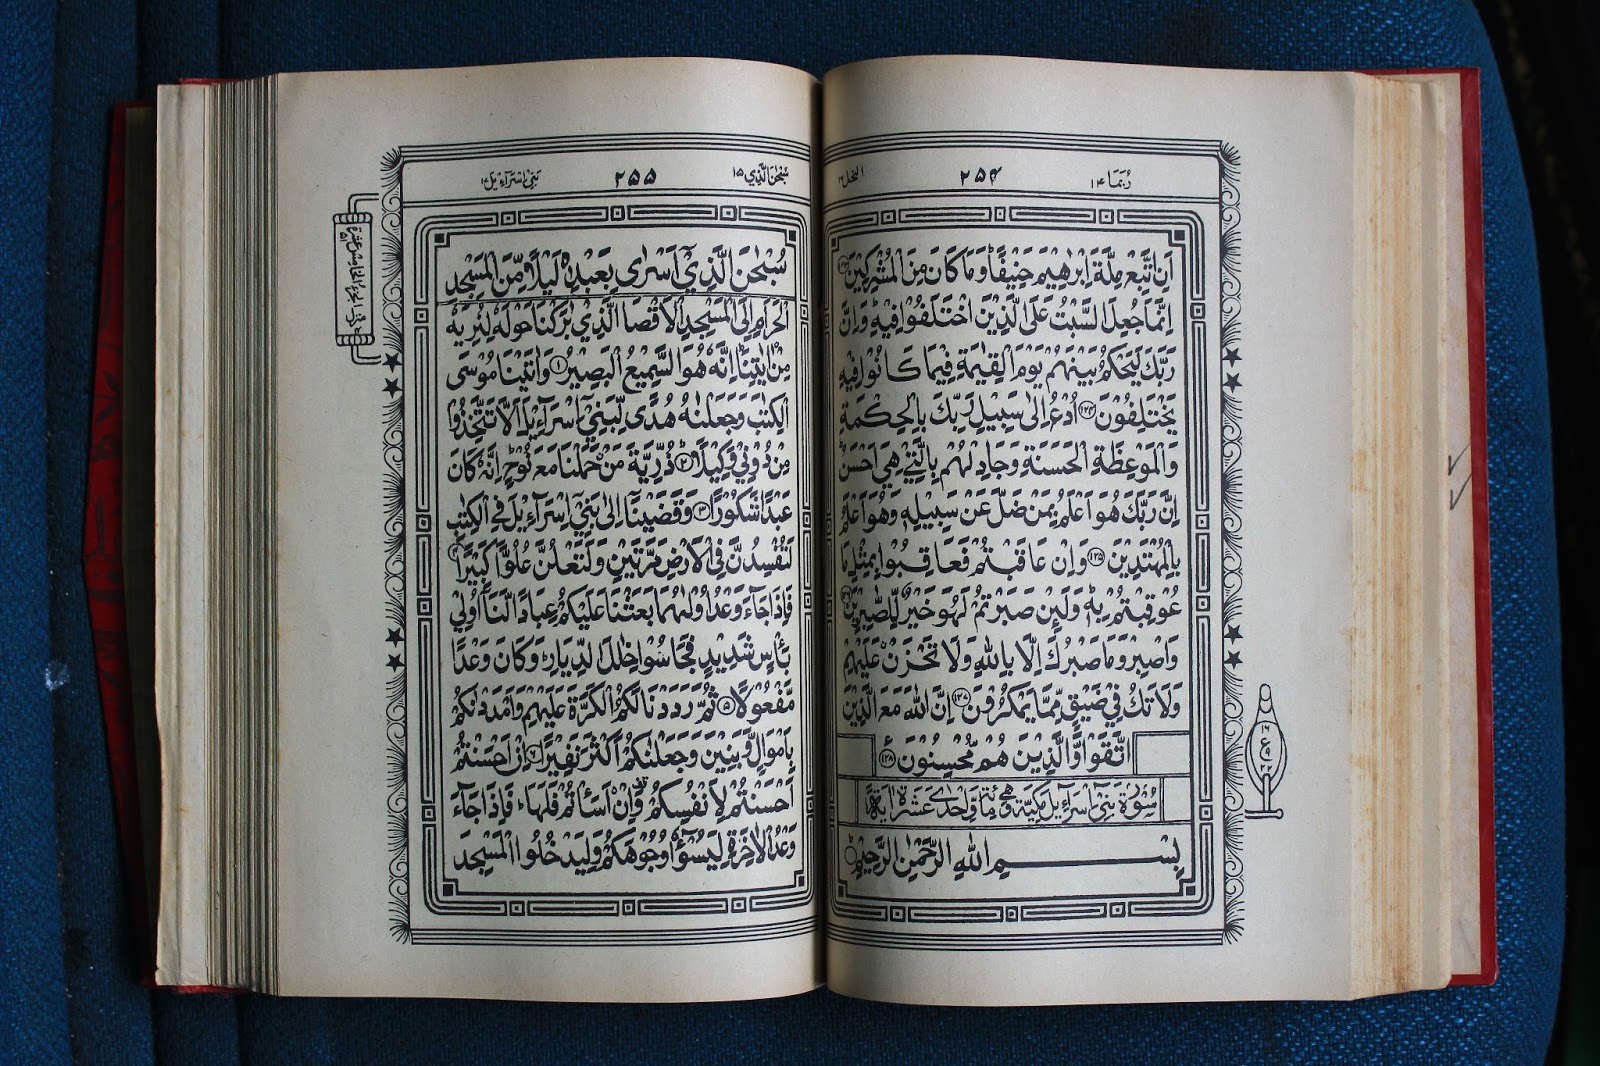 رُبَمَا ۱۴
۲۵۴
النحل ۱۶
اَنِ اتَّبِعْ مِلَّةَ اِبْرٰهِيْمَ حَنِيْفًا ؕ وَمَا كَانَ مِنَ الْمُشْرِكِيْنَ ۱۲۳
اِنَّمَا جُعِلَ السَّبْتُ عَلَى الَّذِيْنَ اخْتَلَفُوْا فِيْهِ ؕ وَاِنَّ
رَبَّكَ لَيَحْكُمُ بَيْنَهُمْ يَوْمَ الْقِيٰمَةِ فِيْمَا كَانُوْا فِيْهِ
يَخْتَلِفُوْنَ ۱۲۴ اُدْعُ اِلٰى سَبِيْلِ رَبِّكَ بِالْحِكْمَةِ
وَالْمَوْعِظَةِ الْحَسَنَةِ وَجَادِلْهُمْ بِالَّتِيْ هِيَ اَحْسَنُ ؕ
اِنَّ رَبَّكَ هُوَ اَعْلَمُ بِمَنْ ضَلَّ عَنْ سَبِيْلِهٖ وَهُوَ اَعْلَمُ
بِالْمُهْتَدِيْنَ ۱۲۵ وَاِنْ عَاقَبْتُمْ فَعَاقِبُوْا بِمِثْلِ مَا
عُوْقِبْتُمْ بِهٖ ؕ وَلَئِنْ صَبَرْتُمْ لَهُوَ خَيْرٌ لِّلصّٰبِرِيْنَ ۱۲۶
وَاصْبِرْ وَمَا صَبْرُكَ اِلَّا بِاللّٰهِ وَلَا تَحْزَنْ عَلَيْهِمْ
وَلَا تَكُ فِيْ ضَيْقٍ مِّمَّا يَمْكُرُوْنَ ۱۲۷ اِنَّ اللّٰهَ مَعَ الَّذِيْنَ
اتَّقَوْا وَّالَّذِيْنَ هُمْ مُّحْسِنُوْنَ ۱۲۸
سُوْرَةُ بَنِيْٓ اِسْرَآءِيْلَ مَكِّيَّةٌ وَّهِيَ مِائَةٌ وَّاِحْدٰى عَشْرَةَ اٰيَةً
بِسْمِ اللّٰهِ الرَّحْمٰنِ الرَّحِيْمِ
ع
سُبْحٰنَ الَّذِيْ ۱۵
۲۵۵
بَنِيْٓ اِسْرَآءِيْلَ ۱۷
سُبْحٰنَ الَّذِيْٓ اَسْرٰى بِعَبْدِهٖ لَيْلًا مِّنَ الْمَسْجِدِ
الْحَرَامِ اِلَى الْمَسْجِدِ الْاَقْصَا الَّذِيْ بٰرَكْنَا حَوْلَهٗ لِنُرِيَهٗ
مِنْ اٰيٰتِنَا ؕ اِنَّهٗ هُوَ السَّمِيْعُ الْبَصِيْرُ ۱ وَاٰتَيْنَا مُوْسَى
الْكِتٰبَ وَجَعَلْنٰهُ هُدًى لِّبَنِيْٓ اِسْرَآءِيْلَ اَلَّا تَتَّخِذُوْا
مِنْ دُوْنِيْ وَكِيْلًا ۲ ذُرِّيَّةَ مَنْ حَمَلْنَا مَعَ نُوْحٍ ؕ اِنَّهٗ كَانَ
عَبْدًا شَكُوْرًا ۳ وَقَضَيْنَآ اِلٰى بَنِيْٓ اِسْرَآءِيْلَ فِى الْكِتٰبِ
لَتُفْسِدُنَّ فِى الْاَرْضِ مَرَّتَيْنِ وَلَتَعْلُنَّ عُلُوًّا كَبِيْرًا ۴
فَاِذَا جَآءَ وَعْدُ اُوْلٰىهُمَا بَعَثْنَا عَلَيْكُمْ عِبَادًا لَّنَآ اُولِيْ
بَاْسٍ شَدِيْدٍ فَجَاسُوْا خِلٰلَ الدِّيَارِ ؕ وَكَانَ وَعْدًا
مَّفْعُوْلًا ۵ ثُمَّ رَدَدْنَا لَكُمُ الْكَرَّةَ عَلَيْهِمْ وَاَمْدَدْنٰكُمْ
بِاَمْوَالٍ وَّبَنِيْنَ وَجَعَلْنٰكُمْ اَكْثَرَ نَفِيْرًا ۶ اِنْ اَحْسَنْتُمْ
اَحْسَنْتُمْ لِاَنْفُسِكُمْ ۟ وَاِنْ اَسَاْتُمْ فَلَهَا ؕ فَاِذَا جَآءَ
وَعْدُ الْاٰخِرَةِ لِيَسُوْٓءٗا وُجُوْهَكُمْ وَلِيَدْخُلُوا الْمَسْجِدَ